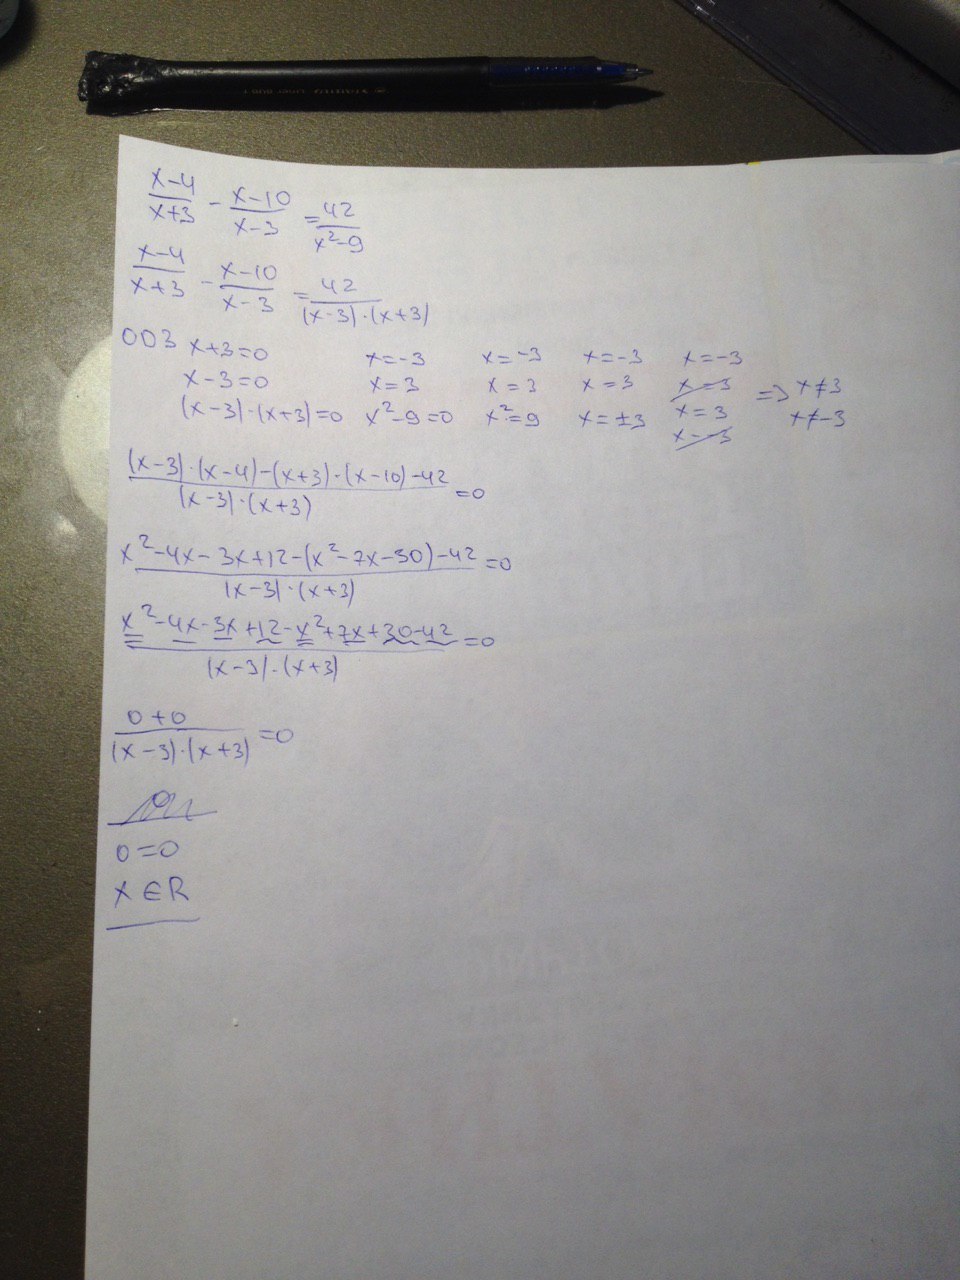 x-4/x+3 - x-10/x-3 = 42/x²-9
x-4/x+3 - x-10/x-3 = 42/(x-3)·(x+3)
ОДЗ x+3=0 x=-3 x=-3 x=-3 x=-3
x-3=0 x=3 x=3 x=3 x=3 => x≠3
(x-3)·(x+3)=0 x²-9=0 x²=9 x=±3 x=3 x≠-3
x=-3
(x-3)·(x-4)-(x+3)·(x-10)-42/(x-3)·(x+3) =0
x²-4x-3x+12-(x²-7x-30)-42/(x-3)·(x+3) =0
x²-4x-3x+12-x²+7x+30-42/(x-3)·(x+3) =0
0+0/(x-3)·(x+3) =0
0=0
x∈R